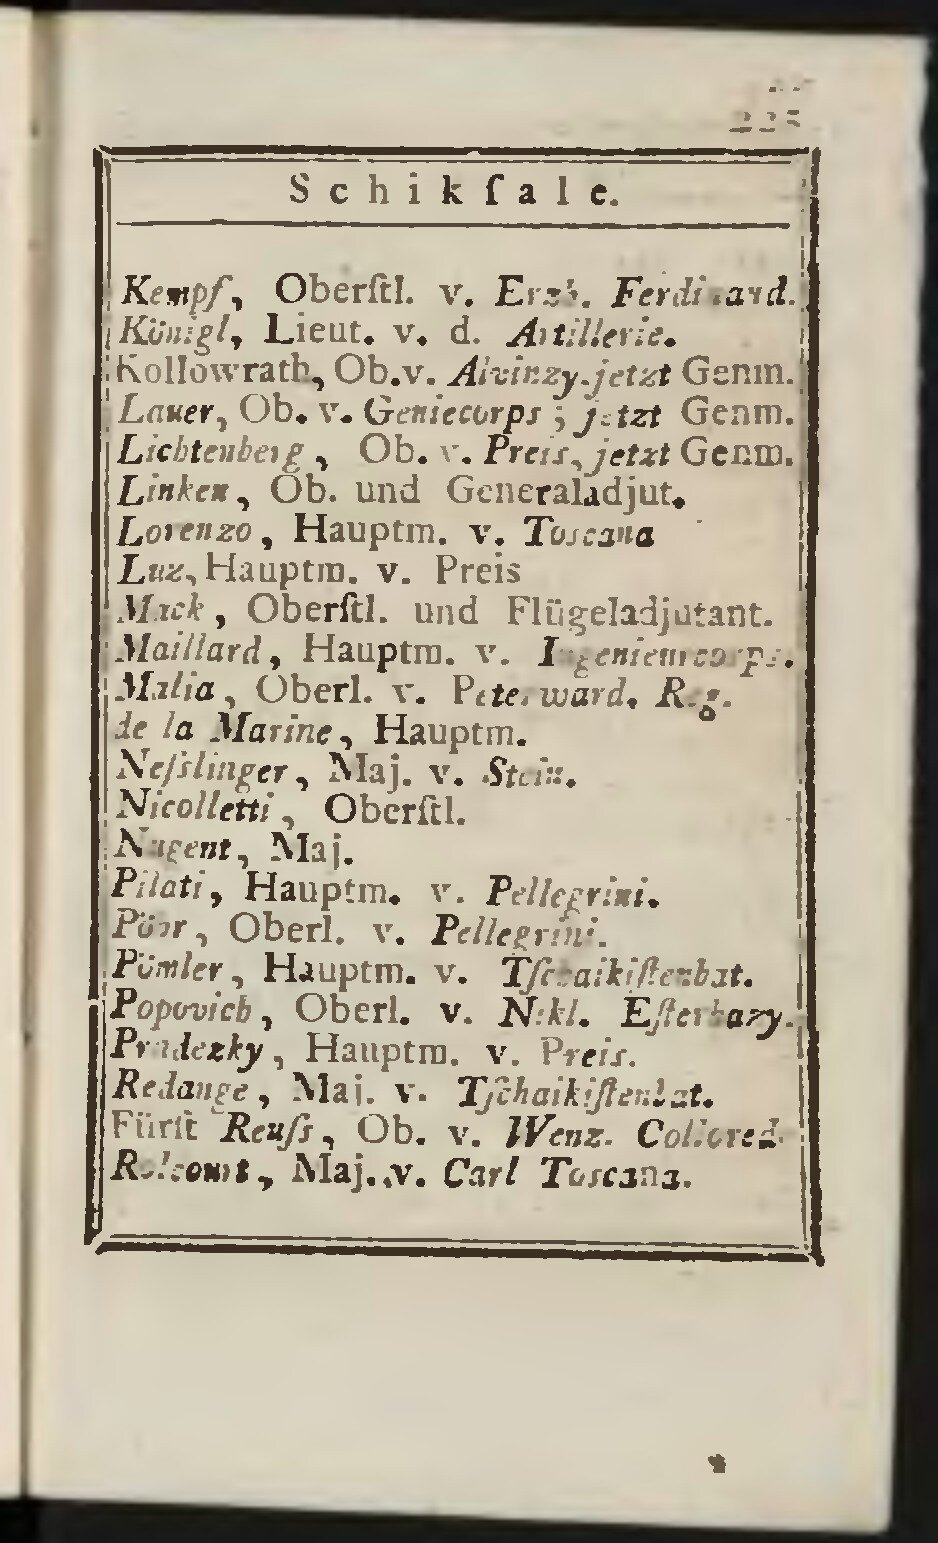 Schikſale.
Kempf, Oberſtl. v. Erzh. Ferdinand.
Königl, Lieut. v. d. Artillerie.
Kollowrath, Ob. v. Alvinzy. jetzt Genm.
Lauer, Ob. v. Geniecorps; jetzt Genm.
Lichtenberg, Ob. v. Preis, jetzt Genm.
Linken, Ob. und Generaladjut.
Lorenzo, Hauptm. v. Toscana
Luz, Hauptm. v. Preis
Mack, Oberſtl. und Flügeladjutant.
Maillard, Hauptm. v. Ingenieurcorps.
Malia, Oberl. v. Peterward. Reg.
de la Marine, Hauptm.
Neſslinger, Maj. v. Stein.
Nicolletti, Oberſtl.
Nugent, Maj.
Pilati, Hauptm. v. Pellegrini.
Oberl. v. Pellegrini.
Pömler, Hauptm. v. Tſchaikiſtenbat.
Popovich, Oberl. v. Nikl. Eſterhazy.
Hauptm. v. Preis.
Redange, Maj. v. Tſchaikiſtenbat.
Fürſt Reuſs, Ob. v. Wenz. Collored.
Maj. v. Carl Toscana.